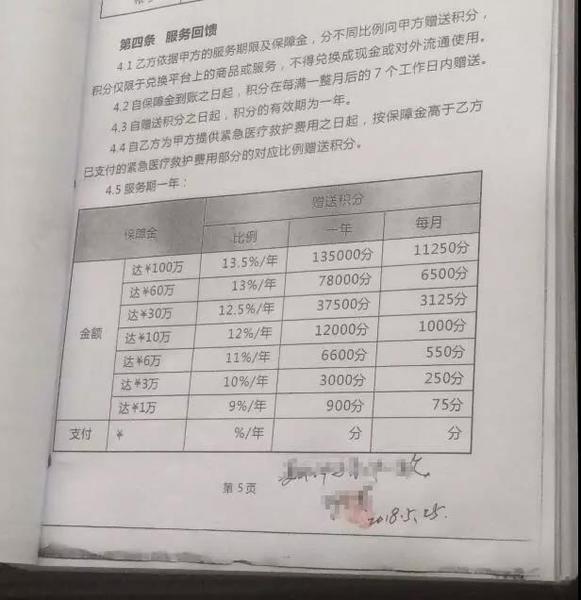 第四条 服务回馈
4.1 乙方依据甲方的服务期限及保障金，分不同比例向甲方赠送积分，
积分仅限于兑换平台上的商品或服务，不得兑换成现金或对外流通使用。
4.2 自保障金到账之日起，积分在每满一整月后的7个工作日内赠送。
4.3 自赠送积分之日起，积分的有效期为一年。
4.4 自乙方为甲方提供紧急医疗救护费用之日起，按保障金高于乙方
已支付的紧急医疗救护费用部分的对应比例赠送积分。
4.5 服务期一年：
保障金 赠送积分
比例 一年 每月
金额
达¥100万 13.5%/年 135000分 11250分
达¥60万 13%/年 78000分 6500分
达¥30万 12.5%/年 37500分 3125分
达¥10万 12%/年 12000分 1000分
达¥6万 11%/年 6600分 550分
达¥3万 10%/年 3000分 250分
达¥1万 9%/年 900分 75分
支付 ¥ %/年 分 分
第5页
2018.5.25.